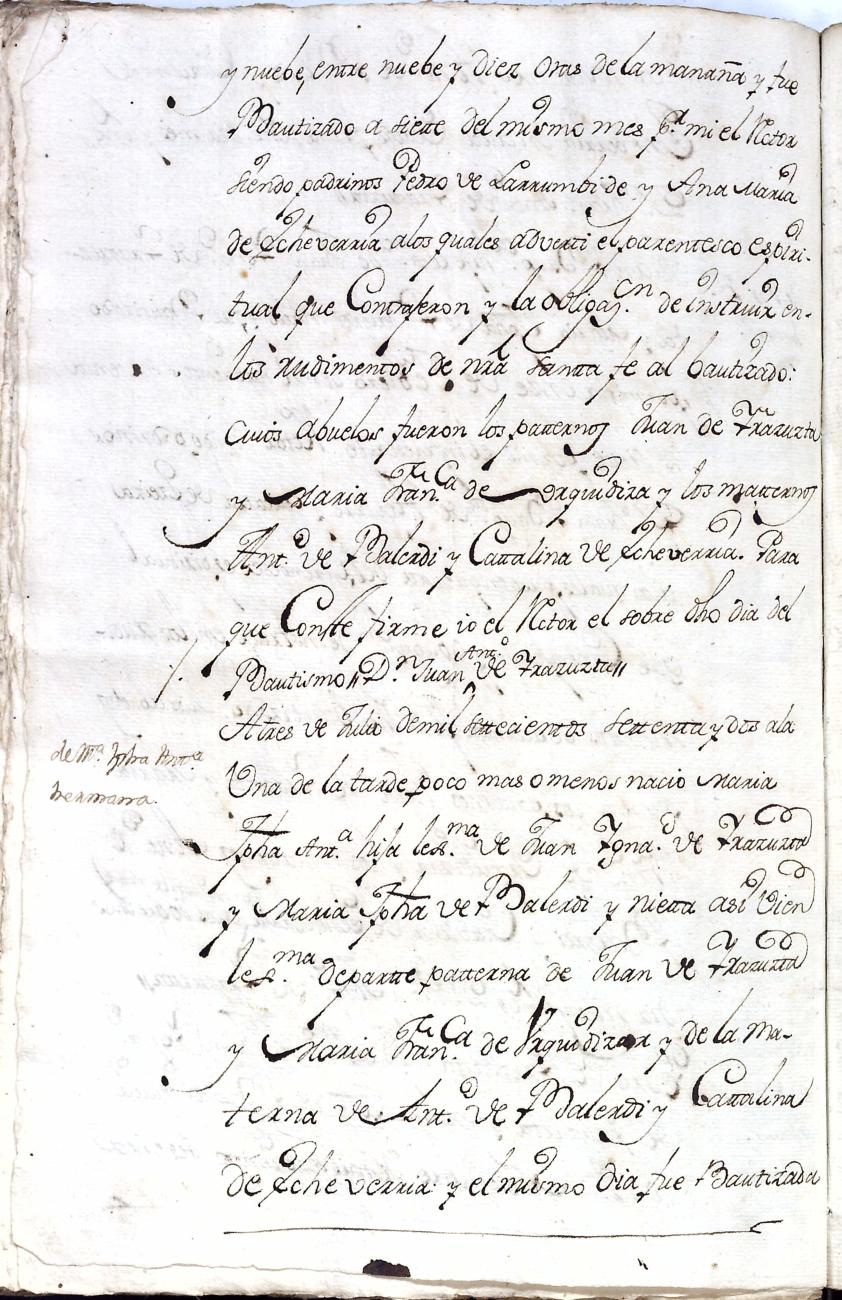 y nuebe, entre nuebe y Diez oras de la mañana y fue
Bautizado a siete del mismo mes p.r mi el Rctor
siendo padrinos Pedro de Larrumbide y Ana Maria
de Echeverria alos quales adverti el parentesco espiri-
tual que Contrajeron y la obligaz.cn de instruir en-
los rudimentos de nrã santta fe al bautizado:
cuios abuelos fueron los patternos Juan de Yrazuzta
y Maria Fran.ca de Vrquidiza y los matternos
Ant.o de Balerdi y Cattalina de Echeverria. Para
que Constte firme io el Rctor el sobre dho dia del
Bautismo // D.n Juan Ant.o de Yrazuzta //
de M.a Jpha Ant.a
hermana.
A tres de Julio de mil settecientos settenta y dos ala
Una de la tarde poco mas o menos nacio Maria
Jpha Ant.a hija lex.ma de Juan Ygna.o de Yrazuzta
y Maria Jpha de Balerdi y nietta asi vien
lex.ma de partte patterna de Juan de Yrazuzta
y Maria Fran.ca de Vrquidizar y de la ma-
terna de Ant.o de Balerdi y Cattalina
de Echeverria y el mismo dia fue Bautizada